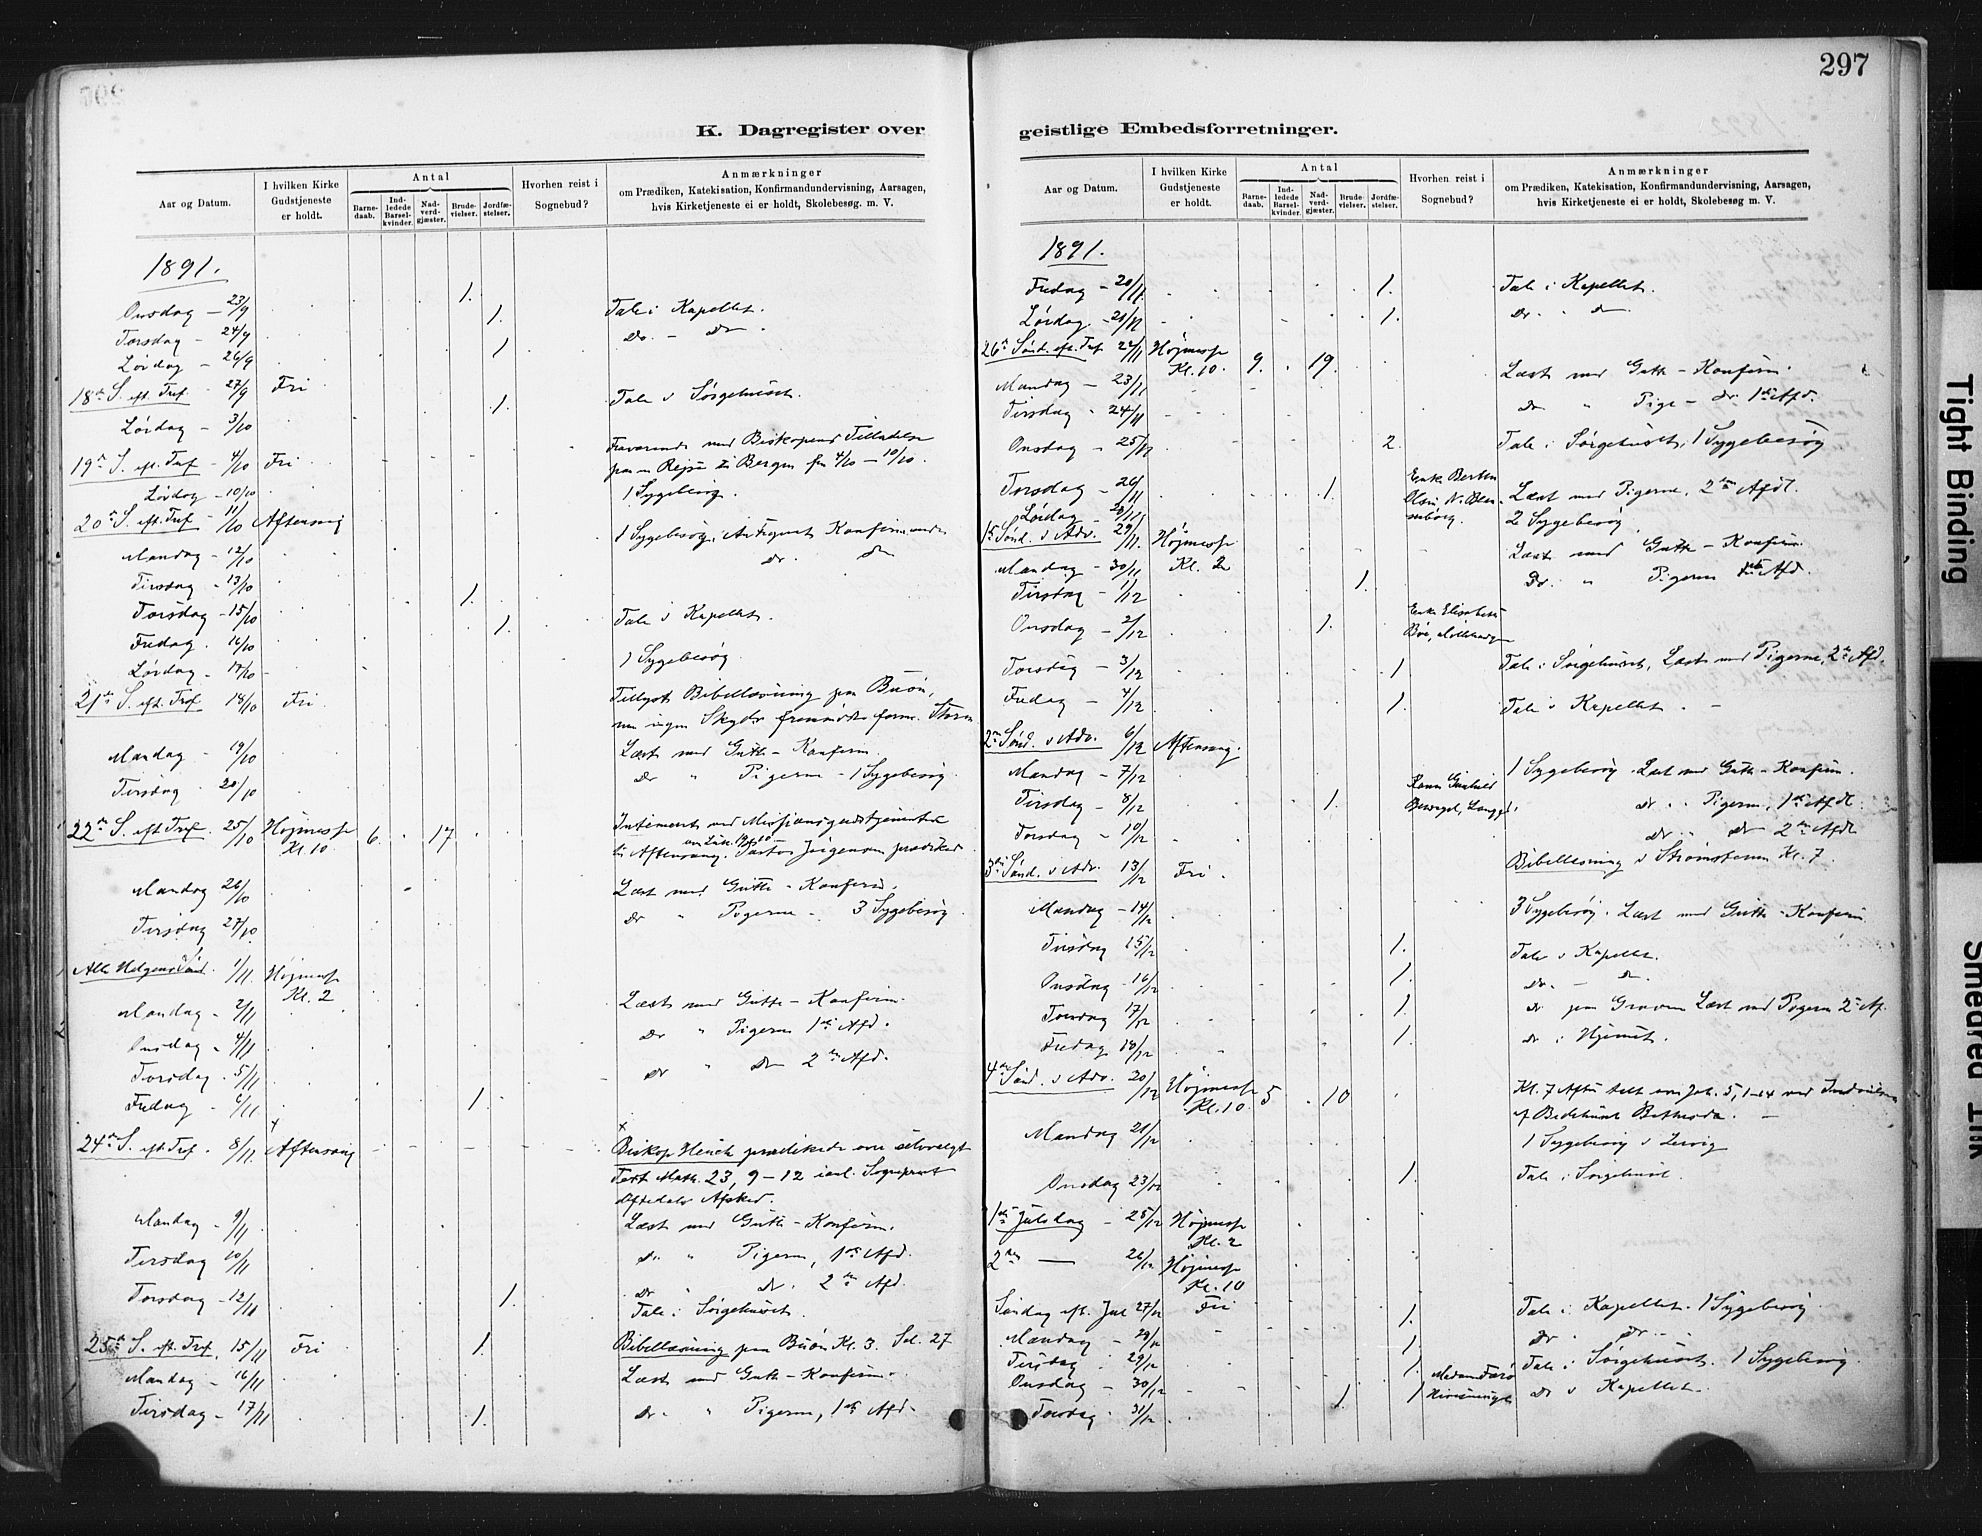 297
K. Dagregister over
geistlige Embedsforretninger.
Aar og Datum.
I hvilken Kirke Gudstjeneste er holdt.
Antal
Barnedaab.
Indledede Barselkvinder.
Nadverdgjæster.
Brudevielser.
Jordfæstelser.
Hvorhen reist i Sognebud?
Anmærkninger
om Prædiken, Katekisation, Konfirmandundervisning, Aarsagen,
hvis Kirketjeneste ei er holdt, Skolebesøg m. V.
1891.
Onsdag - 23/9 1.
Torsdag - 24/9 1. Tale i Kapellet.
Lørdag - 26/9 1. Do. - do
18de S. eft. Tref. 27/9 Fri
Lørdag - 3/10 1. Tale i Sørgehuset.
19de S. eft. Tref - 4/10 Fri Fraværende med Biskopens Tilladelse
paa en Rejse til Bergen fra 4/10 - 10/10.
Lørdag - 10/10 1 Sygebesøg.
20de S. eft. Tref - 11/10 Aftensang
Mandag - 12/10 1 Sygebesøg. Antegnet Konfirmander
Tirsdag - 13/10 do. do
Torsdag - 15/10 1.
Fredag. 16/10 1. Tale i Kapellet.
Lørdag. 17/10 1 Sygebesøg.
21de S. eft. Tref 18/10 Fri. Tillyst Bibellæsning paa Buøn,
men ingen Skyds fremmødte form. Storm
Mandag - 19/10 Læst med Gutte-Konfirm.
Tirsdag - 20/10 do " Pigerne - 1 Sygebesøg.
22de S. eft. Tref. 25/10 Højmesse Kl. 10 6. 17 Intimeret med Missionsgudstjeneste
til Aftensang. Pastor Jørgensen prædiked
Mandag 26/10 Læst med Gutte-Konfirm.
Tirsdag 27/10. do " Pigerne - 3 Sygebesøg.
Alle Helgens Sønd. 1/11. Højmesse Kl. 2
Mandag - 2/11 Læst med Gutte-Konfirm.
Onsdag - 4/11 do " Pigerne 1ste Afd.
Torsdag. 5/11 do " do 2den Afd.
Fredag - 6/11 1.
24de S. eft. Tref. 8/11. Aftensang Biskop Heuch prædikede over selvvalgt
Text Math. 23, 9-12 i anl. Sogneprest
Oftedals Afsked.
Mandag - 9/11. Læst med Gutte-Konfirm.
Tirsdag 10/11 do " Pigerne, 1ste Afd.
Torsdag - 12/11 1. do " do. 2den Afd.
Tale i Sørgehuset.
25de S. eft. Tref. 15/11 Fri 1. Bibellæsning paa Buøn Kl. 3. Sal. 27
Mandag - 16/11 Læst med Gutte-Konfirm.
Tirsdag - 17/11 1. do. " Pigerne, 1ste Afd.
Aar og Datum.
I hvilken Kirke Gudstjeneste er holdt.
Antal
Barnedaab.
Indledede Barselkvinder.
Nadverdgjæster.
Brudevielser.
Jordfæstelser.
Hvorhen reist i Sognebud?
Anmærkninger
om Prædiken, Katekisation, Konfirmandundervisning, Aarsagen,
hvis Kirketjeneste ei er holdt, Skolebesøg m. V.
1891.
Fredag - 20/11 1. Tale i Kapellet.
Lørdag - 21/11 1. Do. " do
26de Sønd. eft. Tref. 22/11 Højmesse Kl. 10. 9. 19.
Mandag - 23/11 Læst med Gutte-Konfirm.
Tirsdag - 24/11 do " Pige - do 1ste Afd.
Onsdag - 25/11 2. Tale i Sørgehuset, 1 Sygebesøg
Torsdag - 26/11 1. Enke Læst med Pigerne, 2den Afdl.
Lørdag - 28/11 2 Sygebesøg.
1ste Sønd. i Adv. 29/11. Højmesse Kl. 2
Mandag - 30/11 Læst med Gutte-Konfirm.
Tirsdag - 1/12 1. Do. " Pigerne 1ste Afd.
Onsdag - 2/12 1. Enke Elisabeth
Torsdag - 3/12 1 Tale i Sørgehuset, Læst med Pigerne, 2den Afd.
Fredag - 4/12 1. Tale i Kapellet.
2den Sønd. i Adv. 6/12 Aftensang.
Mandag - 7/12 1 Sygebesøg. Læst med Gutte-Konfirm.
Tirsdag - 8/12 1. do " Pigerne, 1ste Afdl.
Torsdag - 10/12 do " do 2den Afdl
3die Sønd. i Adv. 13/12 Fri. Bibellæsning i Strømsteen Kl. 7.
Mandag - 14/12 3 Sygebesøg. Læst med Gutte-Konfirm
Tirsdag 15/12 1. Tale i Kapellet.
Onsdag - 16/12 1. do. - do.
Torsdag 17/12 1. do paa Graven Læst med Pigerne 2den Af.
Fredag 18/12 1. do i Hjemmet.
4de Sønd. i Adv. 20/12 Højmesse Kl. 10 5 10 Kl. 7 Aften talt over Joh. 5, 1-14 ved Indvielsen
af Bedehuset Bethesda.
Mandag 21/12 1 Sygebesøg i
Onsdag 23/12 1. Tale i Sørgehuset.
1ste Juledag - 25/12 Højmesse Kl. 2
2den — 26/12 Højmesse Kl. 10
Søndag eft. Jul 27/12 Fri
Mandag - 28/12 1. Tale i Kapellet. 1 Sygebesøg.
Tirsdag 29/12 1 do. do.
Onsdag - 30/12 1. Tale i Sørgehuset. 1 Sygebesøg.
Torsdag 31/12 1 1 do i Kapellet.
Tight Binding
Smeared Ink